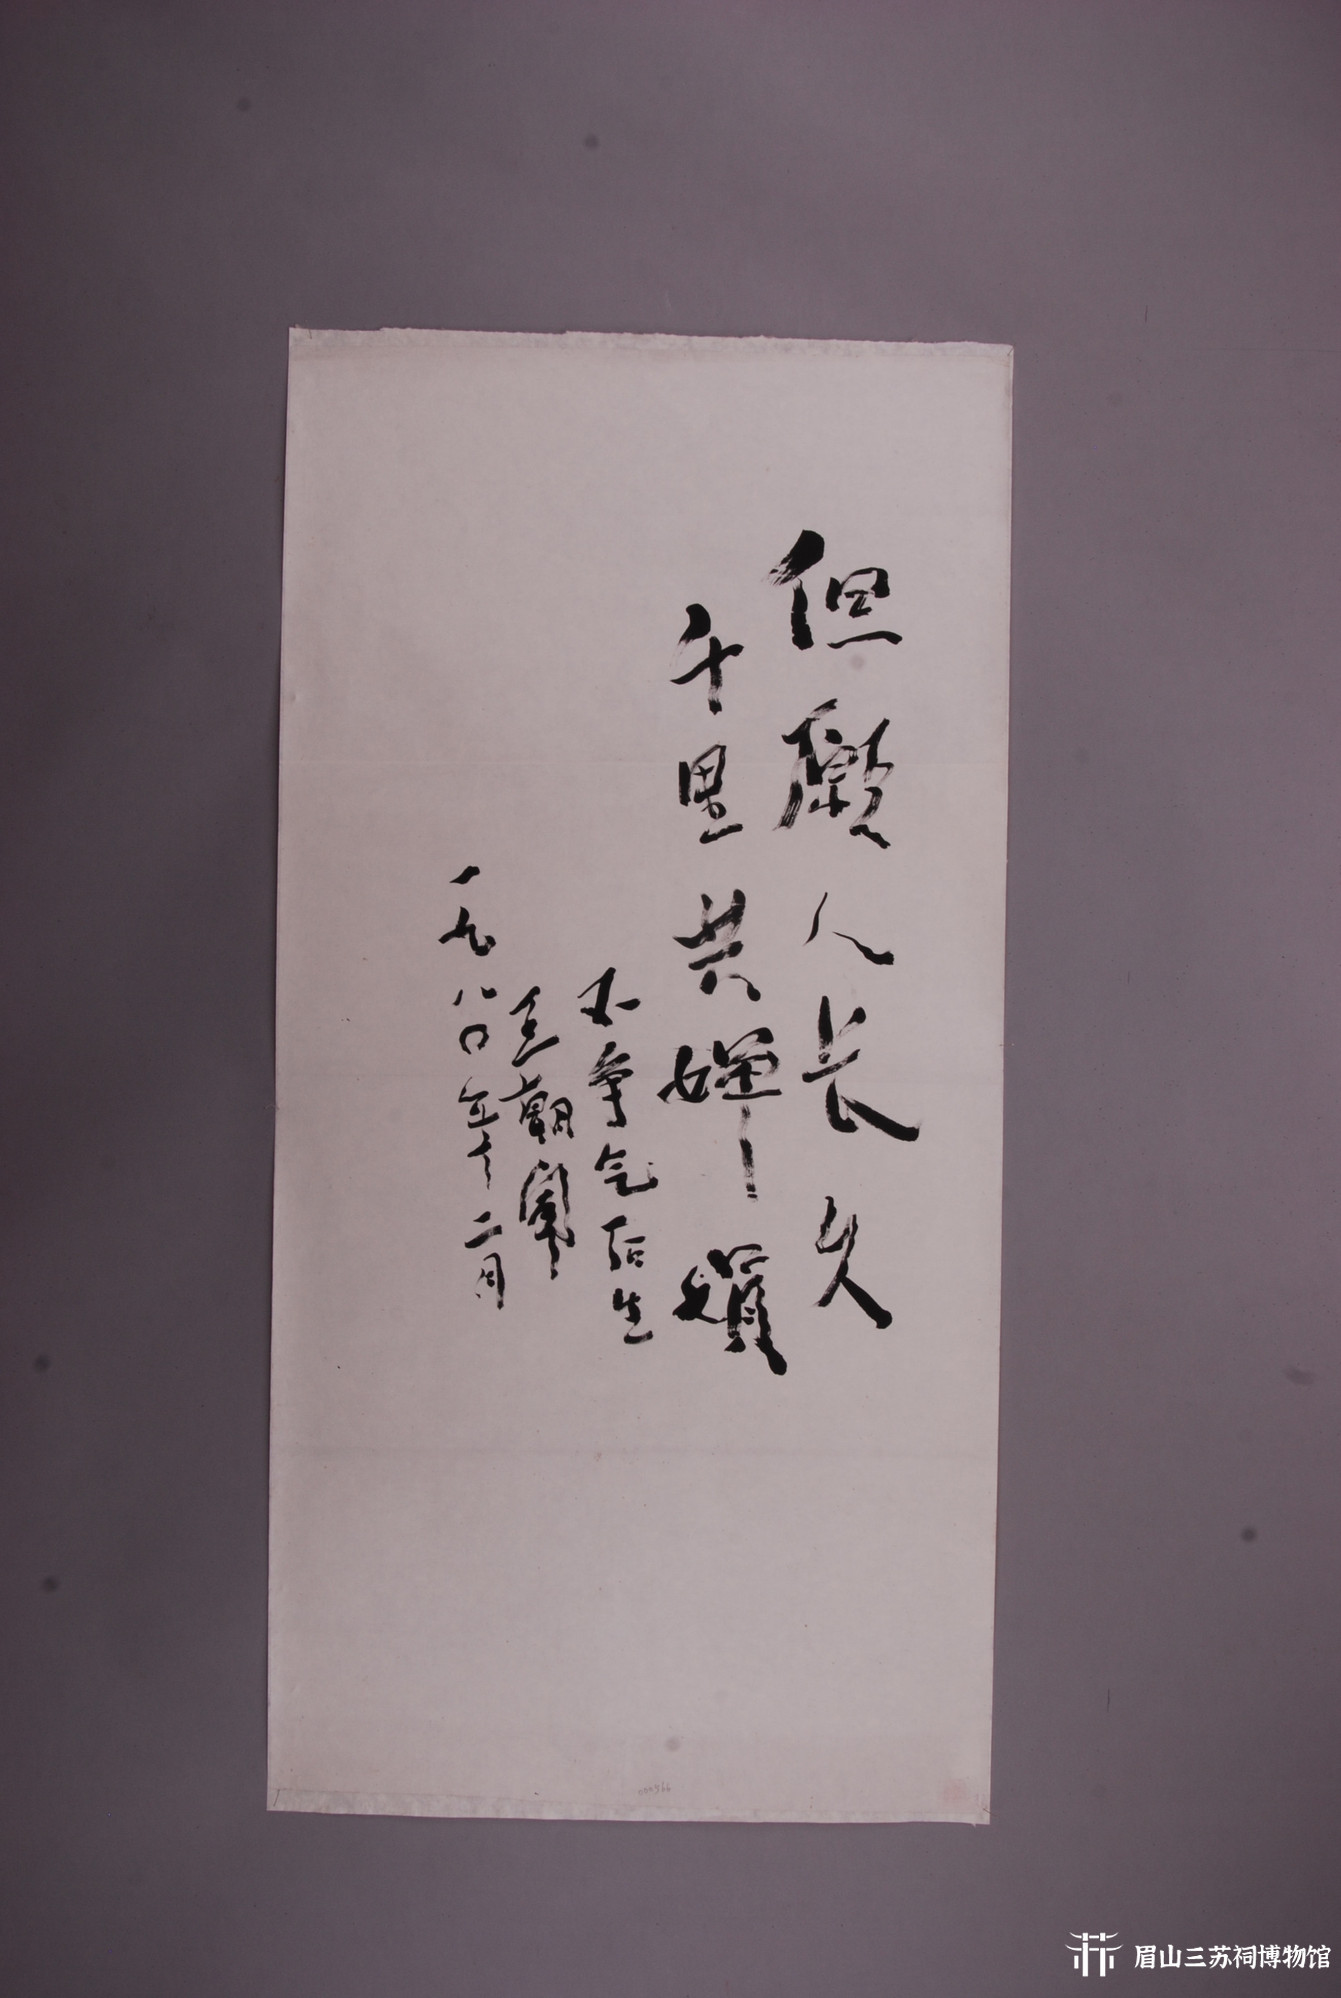 但願人长久
千里共婵嬋
不争气后生
王朝闻
一九八〇年十二月
000466
眉山三苏祠博物馆